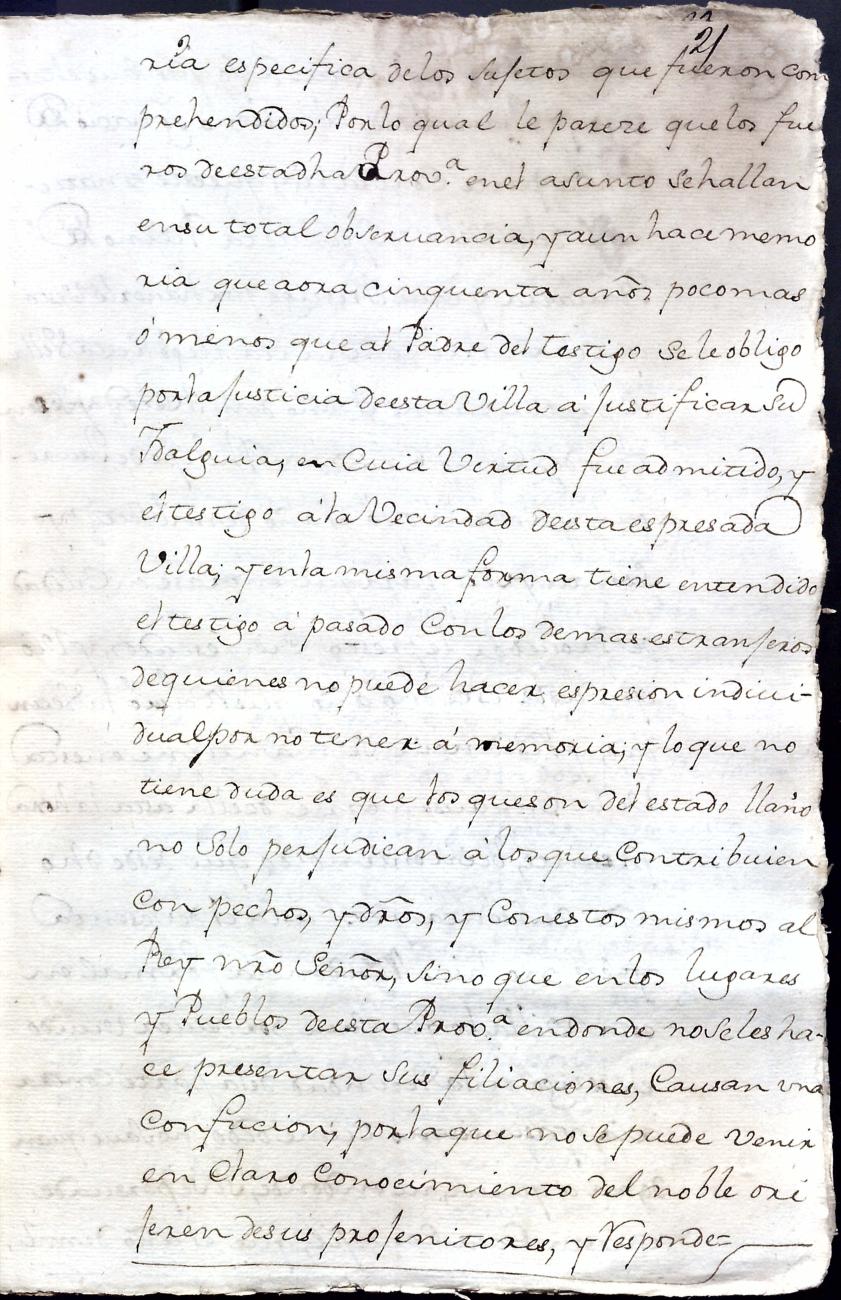 21
ria especifica delos sujetos que fueron com
prehendidos; Porlo qual le pareze quelos fue
ros deestadha Prov.ª enel asunto sehallan
ensu total observancia, y aun hace memo
ria que aora cinquenta años pocomas
ó menos que al Padre del testigo se le obligo
porla Justicia deesta Villa á Justificar su
Idalguia, en Cuia Virtud fue admitido, y
el testigo á la Vecindad deesta espresada
Villa; y enla misma forma tiene entendido
el testigo á pasado Con los demas estranjeros
dequienes no puede hacer espresion indivi-
dual por no tener á memoria; y lo que no
tiene duda es que los queson del estado llano
no Solo perjudican á los que Contribuien
Con pechos, y dros, y Conestos mismos al
Rey nro Señor, sino que en los lugares
y Pueblos deesta Prov.ª endonde noseles ha-
ce presentar sus filiaciones, Causan una
Confucion; porla que no se puede venir
en Claro Conocimiento del noble ori
jeren desus projenitores, y Responde=